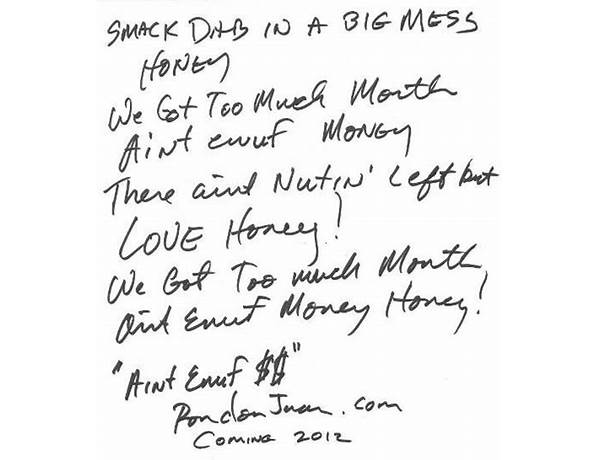 SMACK DAB IN A BIG MESS
HONEY
We Got Too Much Month
Aint enuf MONEY
There aint Nutin' Left but
LOVE Honey!
We Got Too much Month,
aint Enuf Money Honey!
"AINT Enuf $$"
RondonJuan.com
COMING 2012